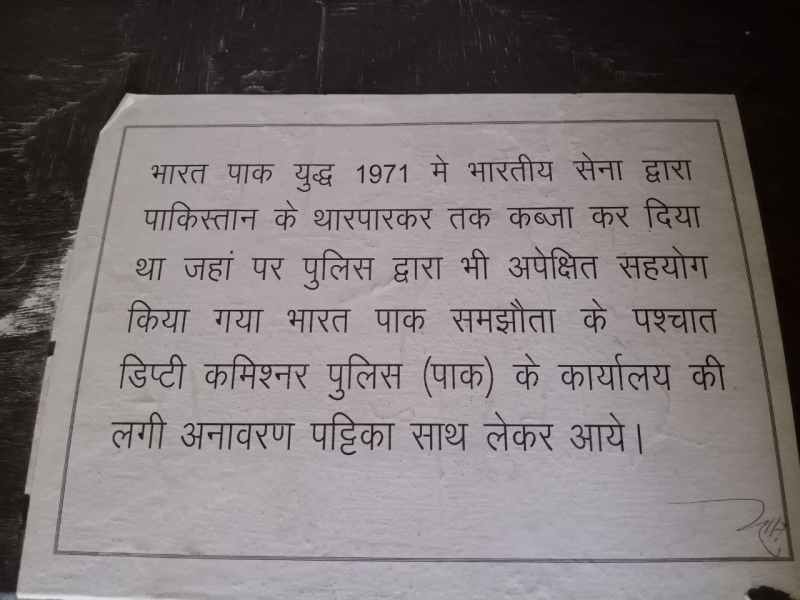 भारत पाक युद्ध 1971 मे भारतीय सेना द्वारा
पाकिस्तान के थारपारकर तक कब्जा कर दिया
था जहां पर पुलिस द्वारा भी अपेक्षित सहयोग
किया गया भारत पाक समझौता के पश्चात
डिप्टी कमिश्नर पुलिस (पाक) के कार्यालय की
लगी अनावरण पट्टिका साथ लेकर आये।